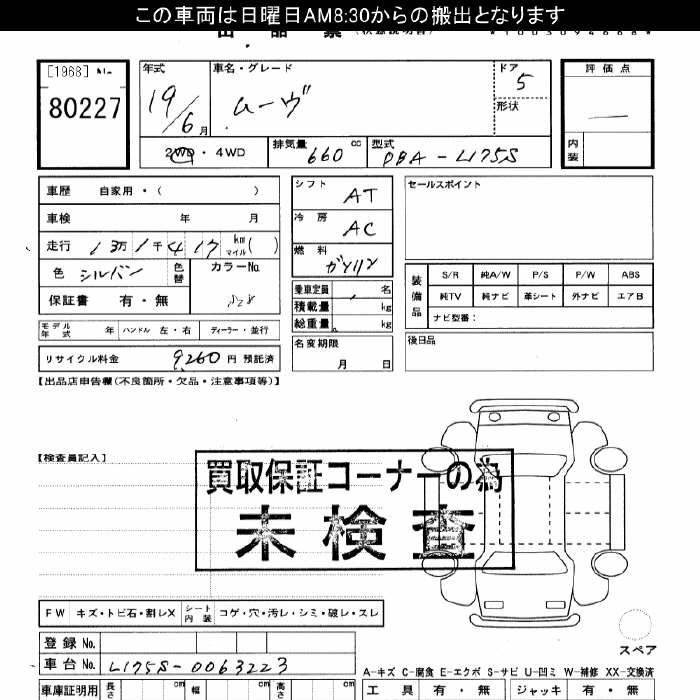 この車両は日曜日AM8:30からの搬出となります
[1968] No.
80227
年式 車名・グレード ドア 評価点
19/6月 ムーヴ 5
形状
2WD・4WD 排気量 660 cc 型式 DBA-L175S 内装
車歴 自家用・( ) シフト AT セールスポイント
車検 年 月 冷房 AC
走行 13万1千417 km マイル ( ) 燃料 ガソリン
色 シルバー 色替 カラーNo. 装備品 S/R 純A/W P/S P/W ABS
保証書 有・無 乗車定員 名 純TV 純ナビ 革シート 外ナビ エアB
積載量 kg ナビ型番:
総重量 kg
モデル年式 年 ハンドル 左・右 ディーラー・並行 名変期限 月 日 後日品
リサイクル料金 9,260 円 預託済
【出品店申告欄(不良箇所・欠品・注意事項等)】
【検査員記入】
買取保証コーナーの為
未検査
FW キズ・トビ石・割レX シート内装 コゲ・穴・汚レ・シミ・破レ・スレ
登録No.
スペア
車台No. L175S-0063223
A-キズ C-腐食 E-エクボ S-サビ U-凹ミ W-補修 XX-交換済
車庫証明用 長さ cm 幅 cm 高さ cm 工具 有・無 ジャッキ 有・無